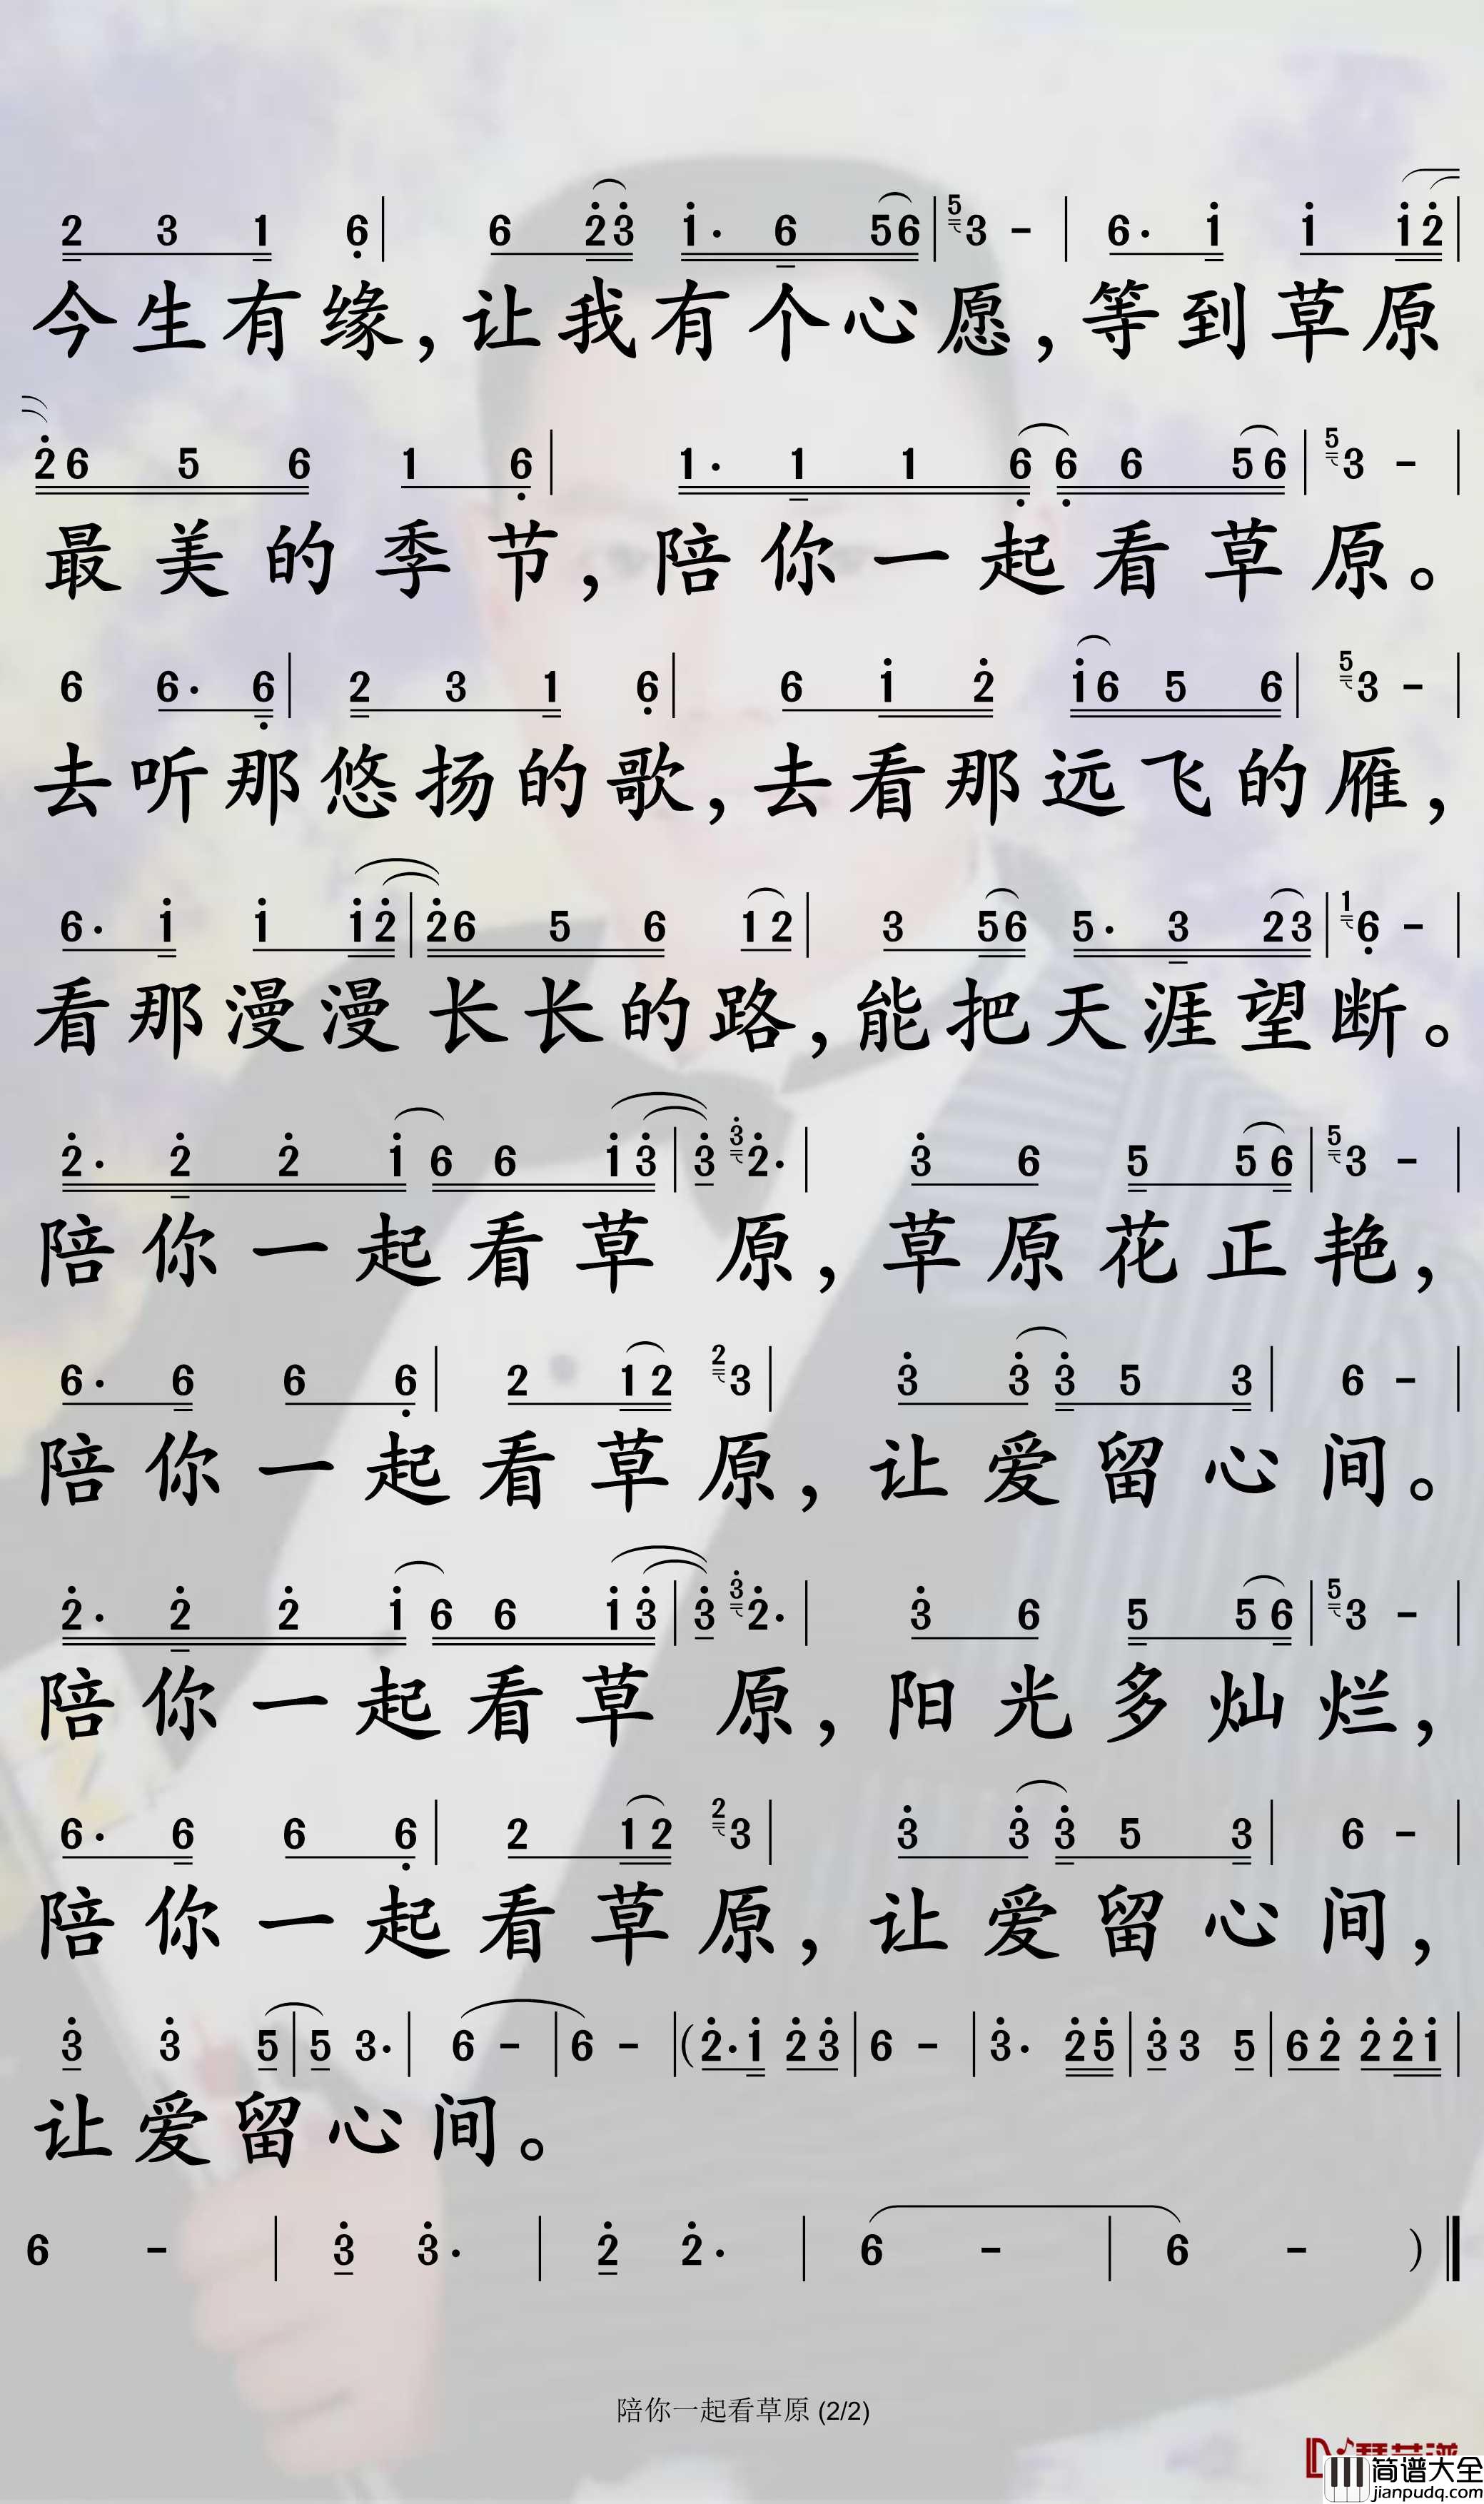 2 3 1 6 | 6 2 3 1· 6 5 6 | 5 3 - | 6· 1 1 1 2 |
今生有缘,让我有个心愿,等到草原
2 6 5 6 1 6 | 1· 1 1 6 6 6 5 6 | 5 3 - |
最美的季节,陪你一起看草原。
6 6· 6 | 2 3 1 6 | 6 1 2 1 6 5 6 | 5 3 - |
去听那悠扬的歌,去看那远飞的雁,
6· 1 1 1 2 | 2 6 5 6 1 2 | 3 5 6 5· 3 2 3 | 1 6 - |
看那漫漫长长的路,能把天涯望断。
2· 2 2 1 6 6 1 3 | 3 3 2· | 3 6 5 5 6 | 5 3 - |
陪你一起看草原,草原花正艳,
6· 6 6 6 | 2 1 2 2 3 | 3 3 3 5 3 | 6 - |
陪你一起看草原,让爱留心间。
2· 2 2 1 6 6 1 3 | 3 3 2· | 3 6 5 5 6 | 5 3 - |
陪你一起看草原,阳光多灿烂,
6· 6 6 6 | 2 1 2 2 3 | 3 3 3 5 3 | 6 - |
陪你一起看草原,让爱留心间,
3 3 5 | 5 3· | 6 - | 6 - | (2· 1 2 3 | 6 - | 3· 2 5 | 3 3 5 | 6 2 2 2 1 |
让爱留心间。
6 - | 3 3· | 2 2· | 6 - | 6 - )
陪你一起看草原 (2/2)
简谱大全
jianpudq.com